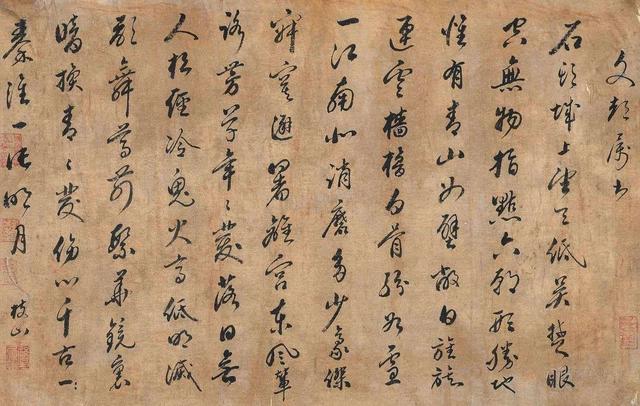 文 屬書
石頭城上望天低吳楚眼
空無物指點六朝形勝地
惟有青山如壁蔽日旌旗
連雲檣櫓白骨紛如雪
一江南北消磨多少豪傑
寂寞避暑離宮東風輦
路芳草年々發落日無
人松徑冷鬼火高低明滅
歌舞尊前繁華鏡裏
暗換青々髮傷心千古
秦淮一片明月
枝山